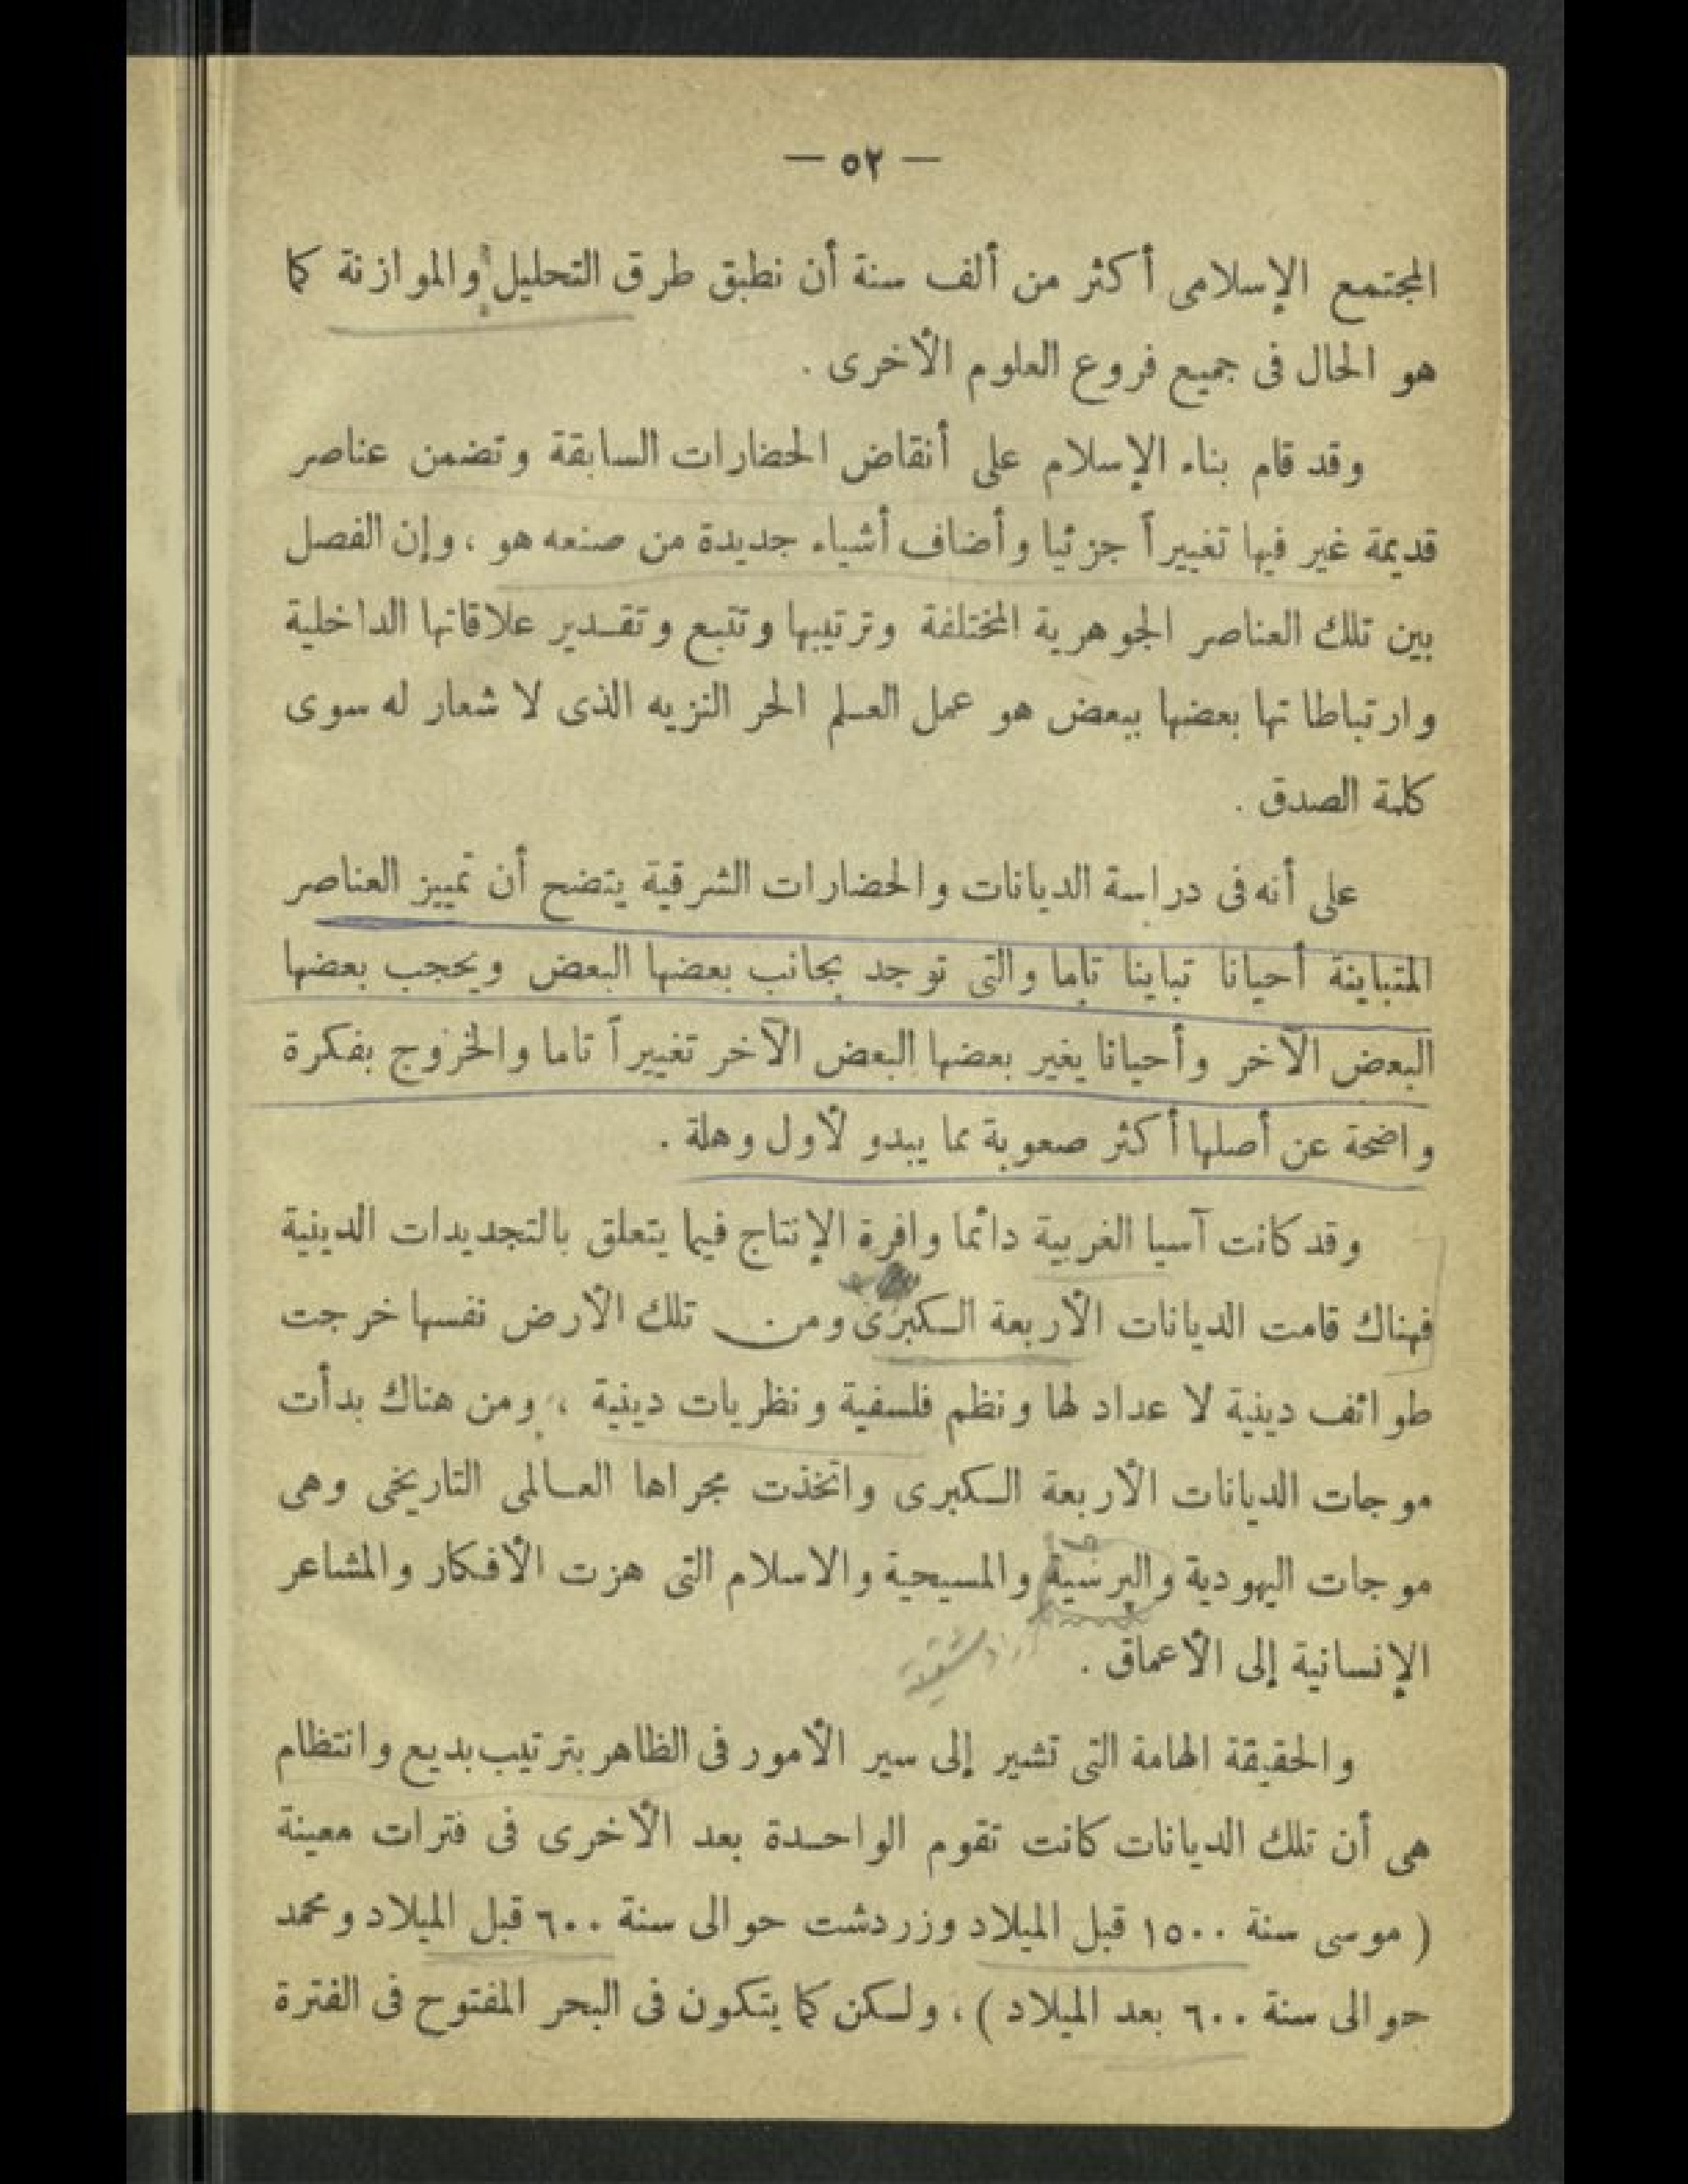 — ٥٢ —
المجتمع الإسلامى أكثر من ألف سنة أن نطبق طرق التحليل والموازنة كما
هو الحال فى جميع فروع العلوم الأخرى .
وقد قام بناء الإسلام على أنقاض الحضارات السابقة وتضمن عناصر
قديمة غير فيها تغييراً جزئيا وأضاف أشياء جديدة من صنعه هو ، وإن الفصل
بين تلك العناصر الجوهرية المختلفة وترتيبها وتتبع وتقدير علاقاتها الداخلية
وارتباطاتها بعضها ببعض هو عمل العلم الحر النزيه الذى لا شعار له سوى
كلمة الصدق .
على أنه فى دراسة الديانات والحضارات الشرقية يتضح أن تمييز العناصر
المتباينة أحيانا تباينا تاما والتى توجد بجانب بعضها البعض ويحجب بعضها
البعض الآخر وأحيانا يغير بعضها البعض الآخر تغييراً تاما والخروج بفكرة
واضحة عن أصلها أكثر صعوبة مما يبدو لأول وهلة .
وقد كانت آسيا الغربية دائما وافرة الإنتاج فيما يتعلق بالتجديدات الدينية
فهناك قامت الديانات الأربعة الكبرى ومن تلك الأرض نفسها خرجت
طوائف دينية لا عداد لها ونظم فلسفية ونظريات دينية ، ومن هناك بدأت
موجات الديانات الأربعة الكبرى واتخذت مجراها العالمى التاريخى وهى
موجات اليهودية والبرسية والمسيحية والاسلام التى هزت الأفكار والمشاعر
الإنسانية إلى الأعماق .
والحقيقة الهامة التى تشير إلى سير الأمور فى الظاهر بترتيب بديع وانتظام
هى أن تلك الديانات كانت تقوم الواحدة بعد الأخرى فى فترات معينة
( موسى سنة ١٥٠٠ قبل الميلاد وزردشت حوالى سنة ٦٠٠ قبل الميلاد ومحمد
حوالى سنة ٦٠٠ بعد الميلاد ) ، ولكن كما يتكون فى البحر المفتوح فى الفترة